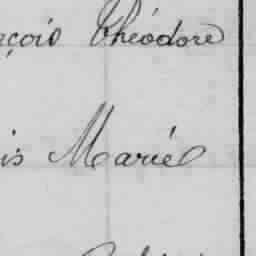 çois Théodore
is Marie